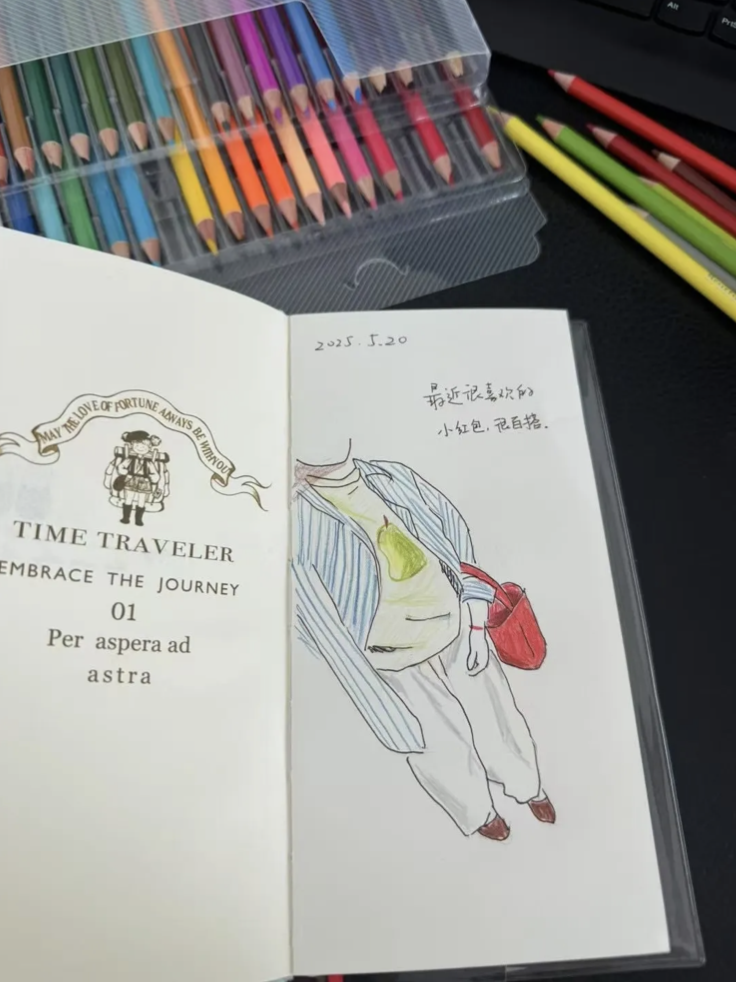 MAY THE LOVE OF FORTUNE ALWAYS BE WITH YOU
TIME TRAVELER
EMBRACE THE JOURNEY
01
Per aspera ad
astra
2025.5.20
最近很喜欢的
小红包,很百搭。
Alt